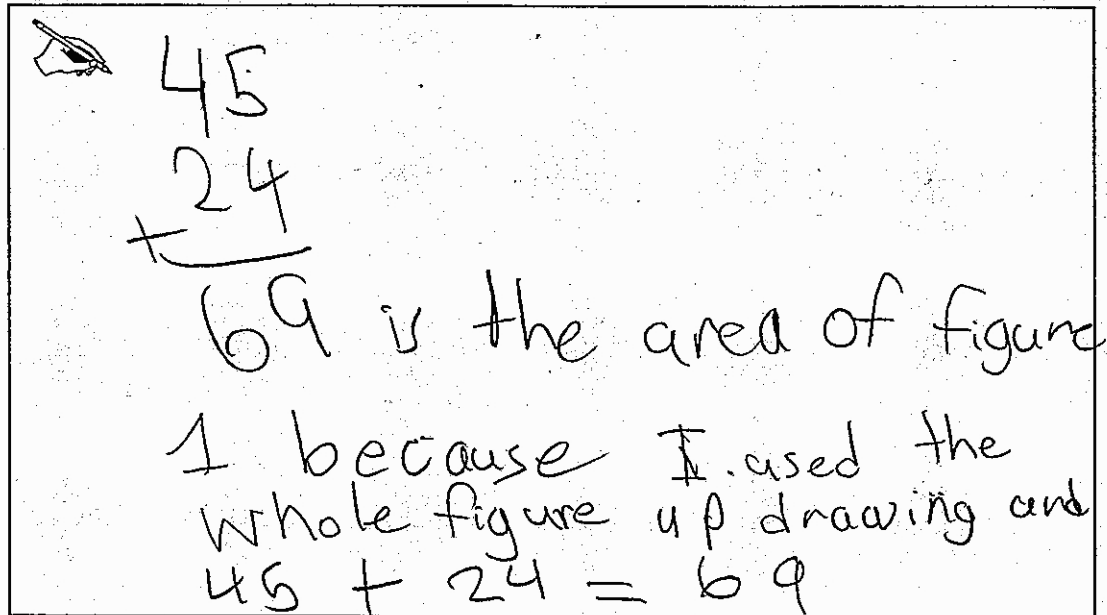 45
24
+
69 is the area of figure
1 because I used the
whole figure up drawing and
45 + 24 = 69